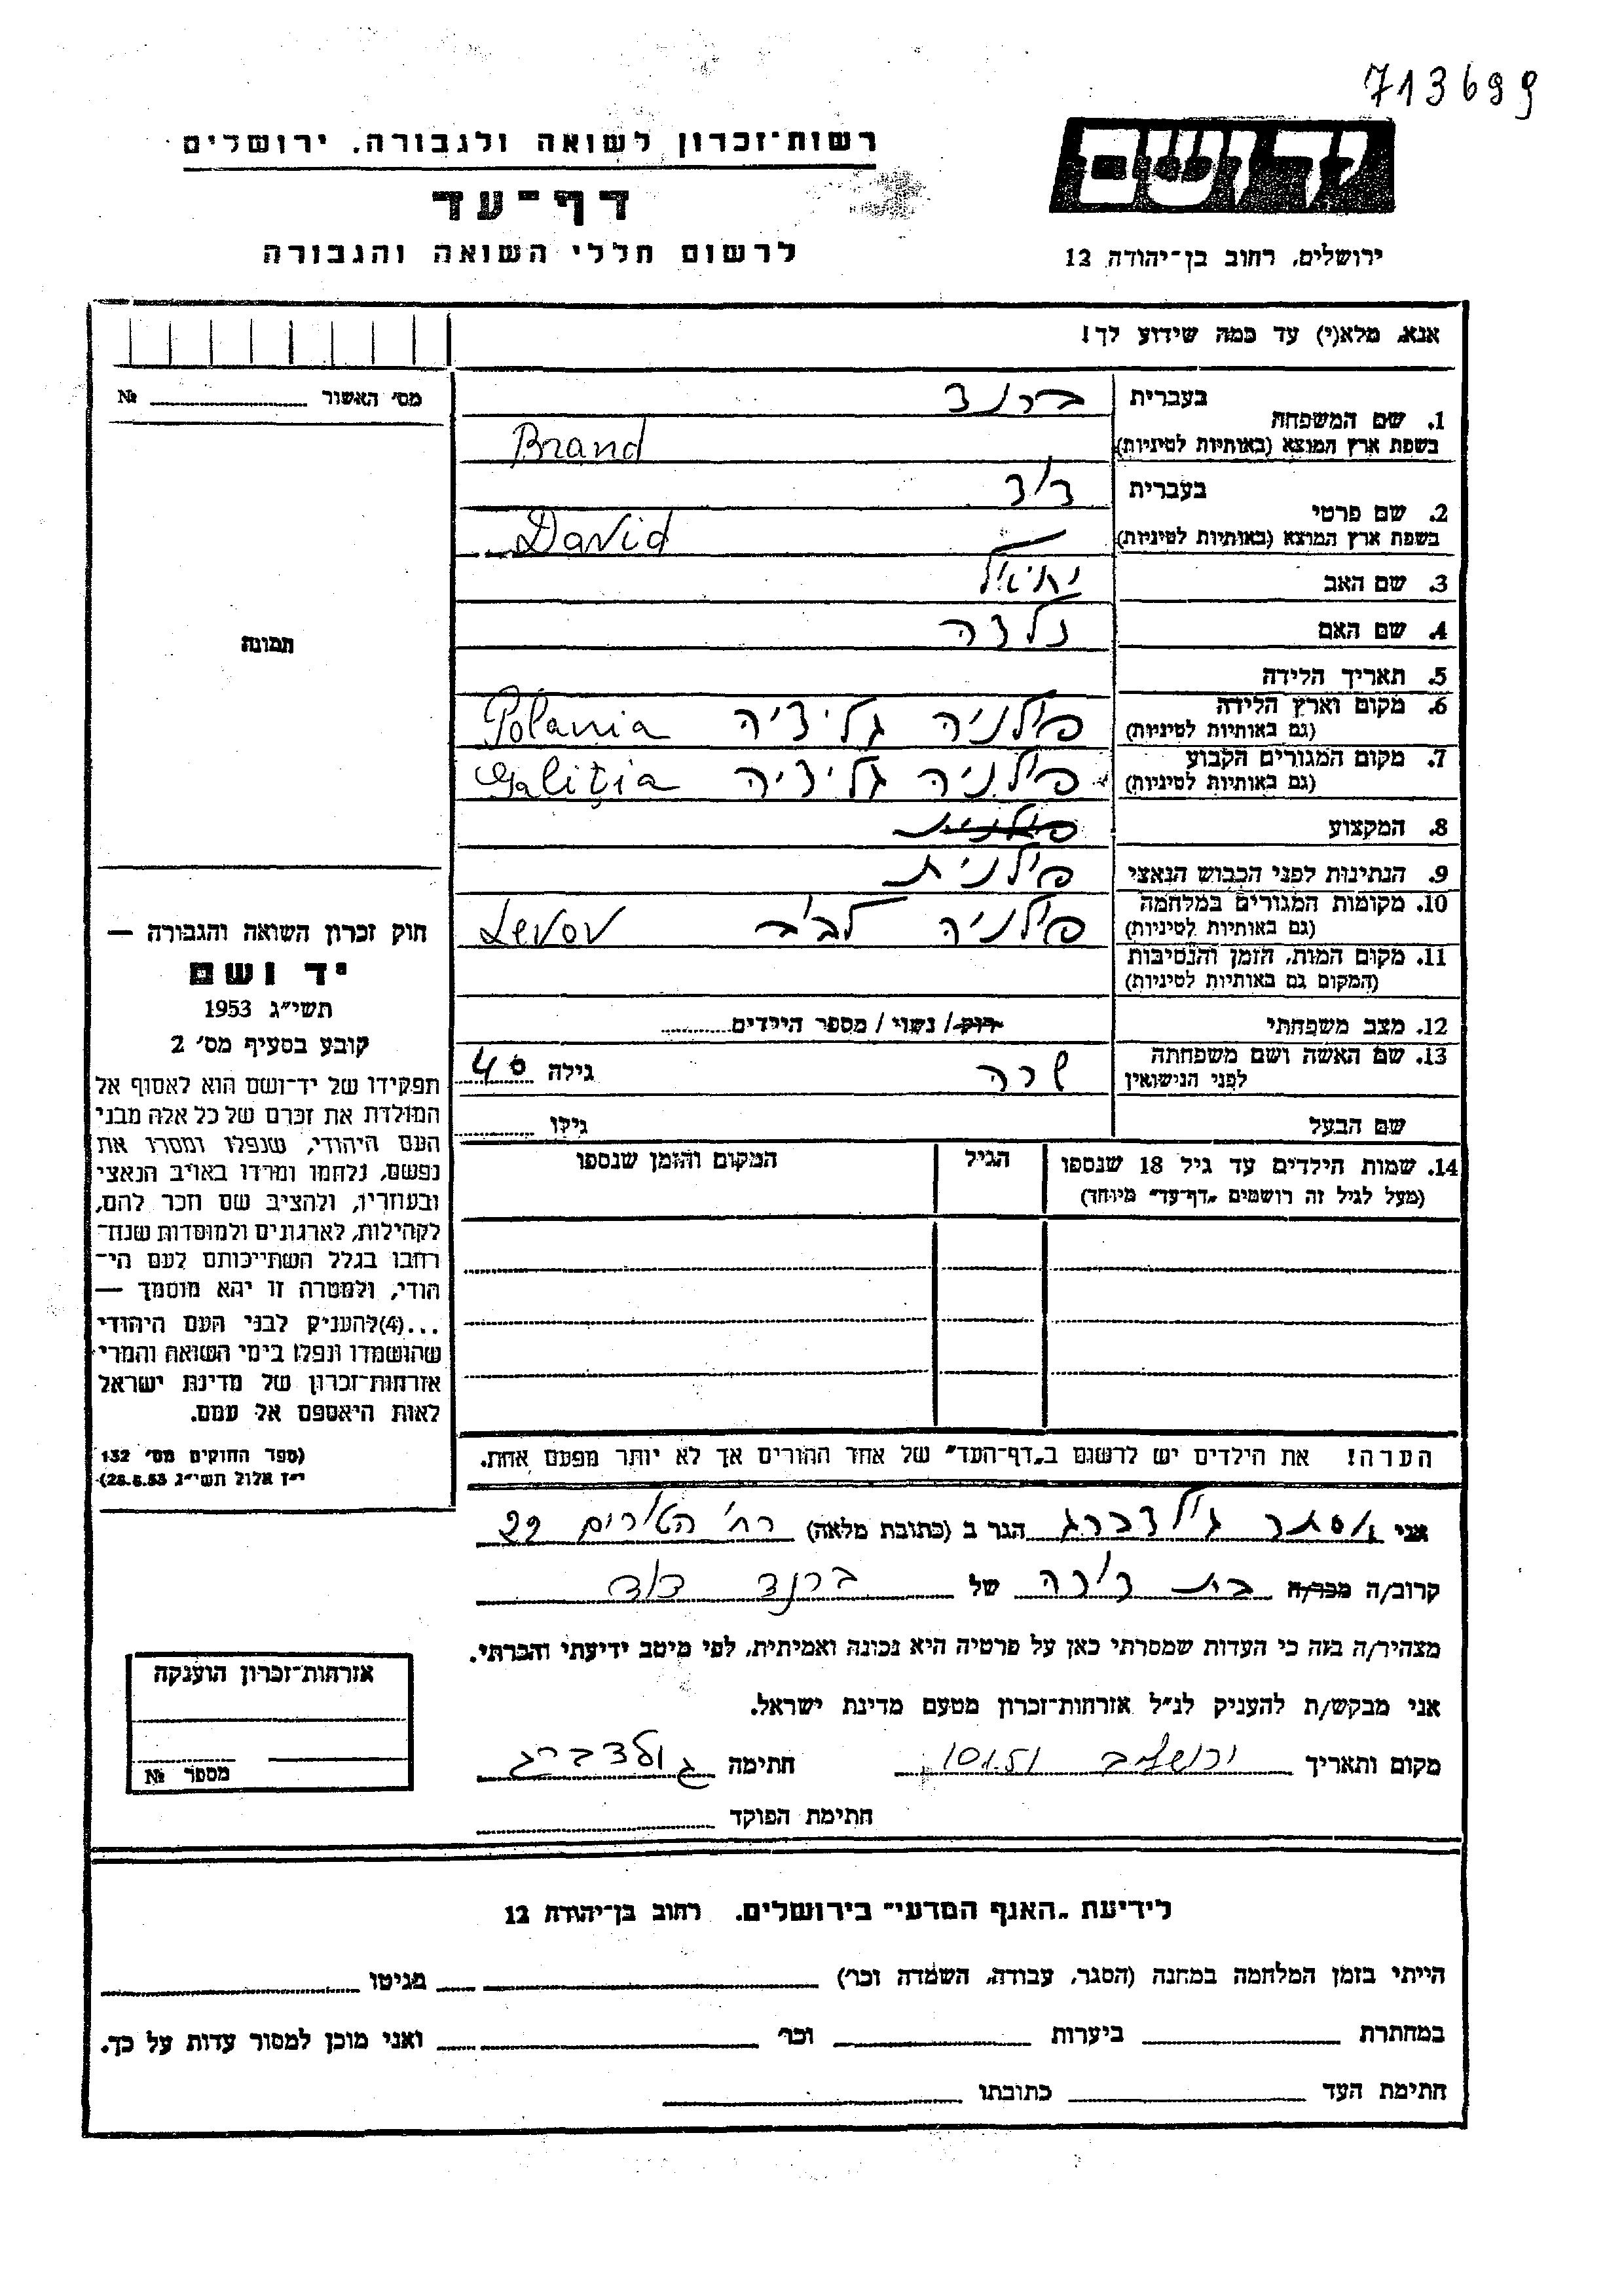 713699
רשות־זכרון לשואה ולגבורה. ירושלים
דף־עד
לרשום חללי השואה והגבורה
יד ושם
ירושלים, רחוב בן־יהודה 12
אנא, מלא(י) עד כמה שידוע לך!
מס׳ האשור № 
תמונה
1. שם המשפחה
בעברית ברנד
בשפת ארץ המוצא (באותיות לטיניות) Brand
2. שם פרטי
בעברית דוד
בשפת ארץ המוצא (באותיות לטיניות) David
3. שם האב יחיאל
4. שם האם
5. תאריך הלידה
6. מקום וארץ הלידה פולניה גליציה Polania
(גם באותיות לטיניות)
7. מקום המגורים הקבוע פולניה גליציה Galiţia
(גם באותיות לטיניות)
8. המקצוע פולנית
9. הנתינות לפני הכבוש הנאצי פולנית
10. מקומות המגורים במלחמה פולניה לבוב Levov
(גם באותיות לטיניות)
11. מקום המות, הזמן והנסיבות
(המקום גם באותיות לטיניות)
12. מצב משפחתי רוק / נשוי / מספר הילדים
13. שם האשה ושם משפחתה שרה גילה 40
לפני הנישואין
שם הבעל גילו
14. שמות הילדים עד גיל 18 שנספו הגיל המקום והזמן שנספו
(מעל לגיל זה רושמים „דף־עד״ מיוחד)
הערה! את הילדים יש לרשום ב„דף־העד״ של אחד ההורים אך לא יותר מפעם אחת.
חוק זכרון השואה והגבורה —
יד ושם
תשי״ג 1953
קובע בסעיף מס׳ 2
תפקידו של יד־ושם הוא לאסוף אל
המולדת את זכרם של כל אלה מבני
העם היהודי, שנפלו ומסרו את
נפשם, נלחמו ומרדו באויב הנאצי
ובעוזריו, ולהציב שם וזכר להם,
לקהילות, לארגונים ולמוסדות שנח־
רבו בגלל השתייכותם לעם הי־
הודי, ולמטרה זו יהא מוסמך —
...(4)להעניק לבני העם היהודי
שהושמדו ונפלו בימי השואה והמרי
אזרחות־זכרון של מדינת ישראל
לאות היאספם אל עמם.
(ספר החוקים מס׳ 132
י״ז אלול תשי״ג 28.8.53)
אני אסתר גולדברג הגר ב (כתובת מלאה) רח׳ הטורים 22
קרוב/ה מכר/ה בת דודה של ברנד דוד
מצהיר/ה בזה כי העדות שמסרתי כאן על פרטיה היא נכונה ואמיתית, לפי מיטב ידיעתי והכרתי.
אני מבקש/ת להעניק לנ״ל אזרחות־זכרון מטעם מדינת ישראל.
מקום ותאריך ירושלים חתימה גולדברג
חתימת הפוקד
אזרחות־זכרון הוענקה
מספר №
לידיעת „האגף המדעי״ בירושלים. רחוב בן־יהודה 12
הייתי בזמן המלחמה במחנה (הסגר, עבודה, השמדה וכו׳) בגיטו
במחתרת ביערות וכו׳ ואני מוכן למסור עדות על כך.
חתימת העד כתובתו